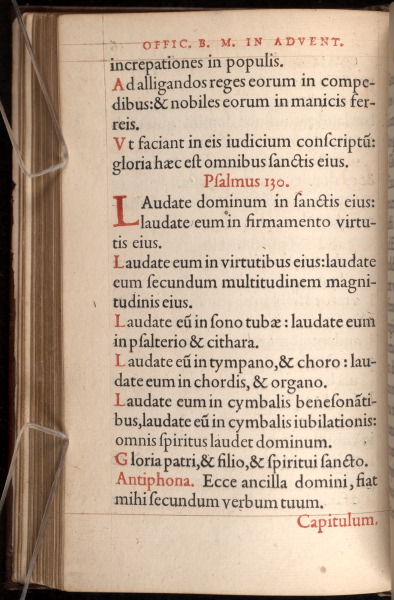 OFFIC. B. M. IN ADVENT.
increpationes in populis.
Ad alligandos reges eorum in compe-
dibus:& nobiles eorum in manicis fer-
reis.
Vt faciant in eis iudicium conſcriptũ:
gloria hæc eſt omnibus ſanctis eius.
Pſalmus 130.
LAudate dominum in ſanctis eius:
laudate eum in firmamento virtu-
tis eius.
Laudate eum in virtutibus eius:laudate
eum ſecundum multitudinem magni-
tudinis eius.
Laudate eũ in ſono tubæ : laudate eum
in pſalterio & cithara.
Laudate eũ in tympano,& choro : lau-
date eum in chordis, & organo.
Laudate eum in cymbalis beneſonãti-
bus,laudate eũ in cymbalis iubilationis:
omnis ſpiritus laudet dominum.
Gloria patri,& filio,& ſpiritui ſancto.
Antiphona. Ecce ancilla domini, fiat
mihi ſecundum verbum tuum.
Capitulum.